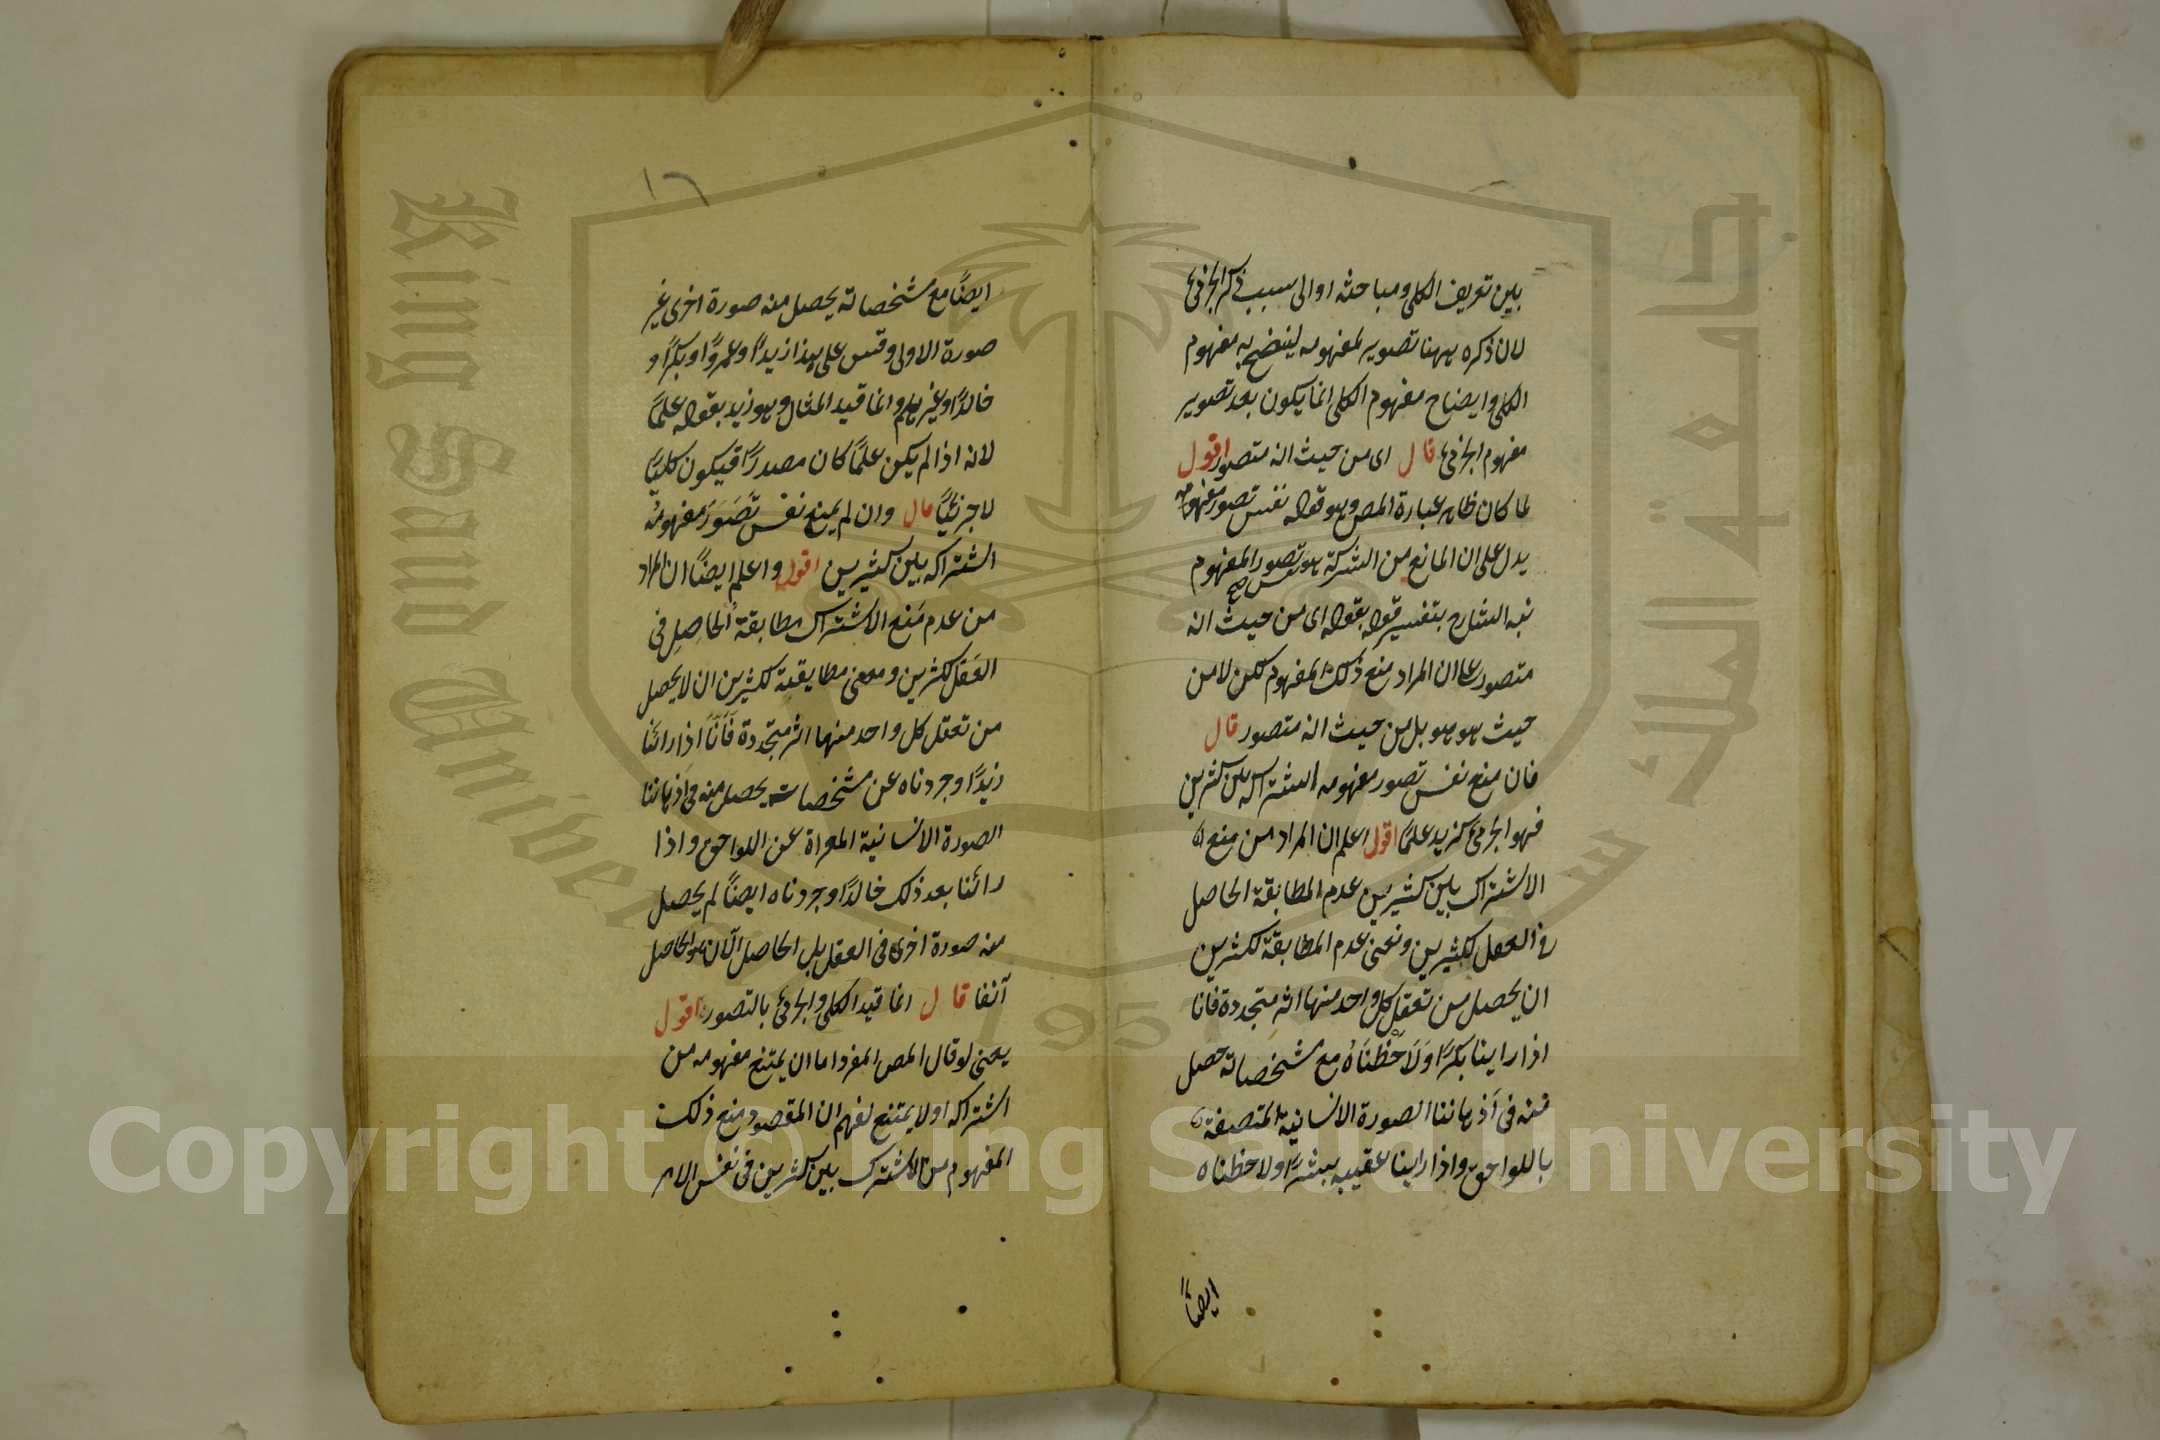 بين تعريف الكلى ومباحثه او الى سبب ذكر الجزئى
لان ذكره ههنا تصوير لمفهومه ليتضح به مفهوم
الكلى وايضاح مفهوم الكلى انما يكون بعد تصوير
مفهوم الجزئى قال اى من حيث انه متصور اقول
لما كان ظاهر عبارة المص وهو قوله نفس تصور مفهومه
يدل على ان المانع من الشركة هو نفس تصور المفهوم
صح
نبه الشارح بتفسير قوله بقوله اى من حيث انه
متصور على ان المراد منع ذلك المفهوم لكن لا من
حيث هو هو بل من حيث انه متصور قال
فان منع نفس تصور مفهومه اشتراكه بين كثيرين
فهو الجزئى كزيد علمًا اقول اعلم ان المراد من منع
الاشتراك بين كثيرين عدم المطابقة الحاصل
فى العقل لكثيرين ونعنى عدم المطابقة لكثيرين
ان يحصل من تعقل كل واحد منها اثر متجددة فانا
اذا راينا بكرًا وَلَاحَظْنَاهُ مع مشخصاته حصل
منه فى اَذهاننا الصورة الانسانية المتصفة
باللواحق واذا راينا عقيبه بشرًا ولاحظناه
ايضًا
١٦
ايضًا مع مشخصاته يحصل منه صورة اخرى غير
صورة الاولى وقس على هذا زيدًا وعمروًا وبكرًا و
خالدًا وغيرهم وانما قيد المثال وهو زيد بقوله علمًا
لانه اذا لم يكن علمًا كان مصدرًا فيكون كليًا
لا جزئيًا قال وان لم يمنع نفس تَصَوّرِ مفهومُه
اشتراكه بين كثيرين اقول واعلم ايضًا ان المراد
من عدم مَنع الاشتراك مطابقةُ الحاصِلِ فى
العَقل لكثيرين ومعنى مطابقته لكثيرين ان لا يحصل
من تعقل كل واحد منها اثر متجددة فَاَنّا اذا رائنا
زيدًا وجردناه عن مشخصاته يحصل منه فى اَذهاننا
الصورة الانسانية المعراة عن اللواحق واذا
رائنا بعد ذلك خالدًا وجردناه ايضًا لم يحصل
منه صورة اخرى فى العقل بل الحاصل الآن هو الحاصل
آنفا قال انما قيد الكلى والجزئى بالتصور اقول
يعنى لو قال المص المفرد اما ان يمتنع مفهومه من
اشتراكه او لا يمتنع لفهم ان المقصود منع ذلك
المفهوم من الاشتراك بين كثيرين فى نفس الامر
King Saud Univer
جامعة الملك س
195
Copyright © King Saud University